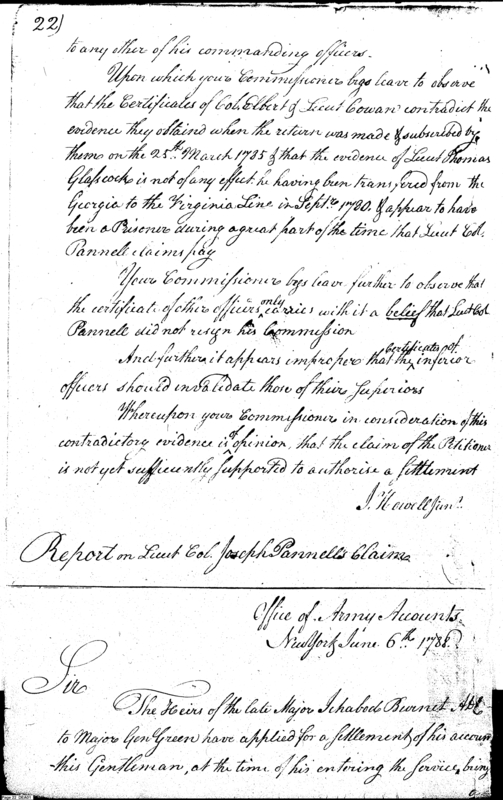 22)
to any other of his commanding officers.
Upon which your Commissioner begs leave to observe
that the Certificates of Col. Elbert & Lieut Cowan contradict the
evidence they obtaind when the return was made & subscribed by
them on the 25th March 1785 & that the evidence of Lieut Thomas
Glasscock is not of any effect, he having been transfered from the
Georgia to the Virginia Line in Septr. 1780. & appear to have
been a Prisoner during a great part of the time that Lieut Col.
Pannell claims pay
Your Commissioner begs leave further to observe that
the certificate of other officers only carries with it a belief that Lieut Col
Pannell did not resign his Commission
And further it appears improper that the certificates of inferior
officers should invalidate those of their Superiors
Whereupon your Commissioner in consideration of this
contradictory evidence is of opinion, that the claim of the Petitioner
is not yet sufficiently supported to authorise a Settlement
J. Howell Junr.
Report on Lieut Col. Joseph Pannells Claim
Office of Army Accounts
New York June 6th 1788.
Sir
The Heirs of the late Major Ichabod Burnet ADC
to Major Genl Green have applied for a settlement of his accoun
this Gentleman, at the time of his entering the Service, being